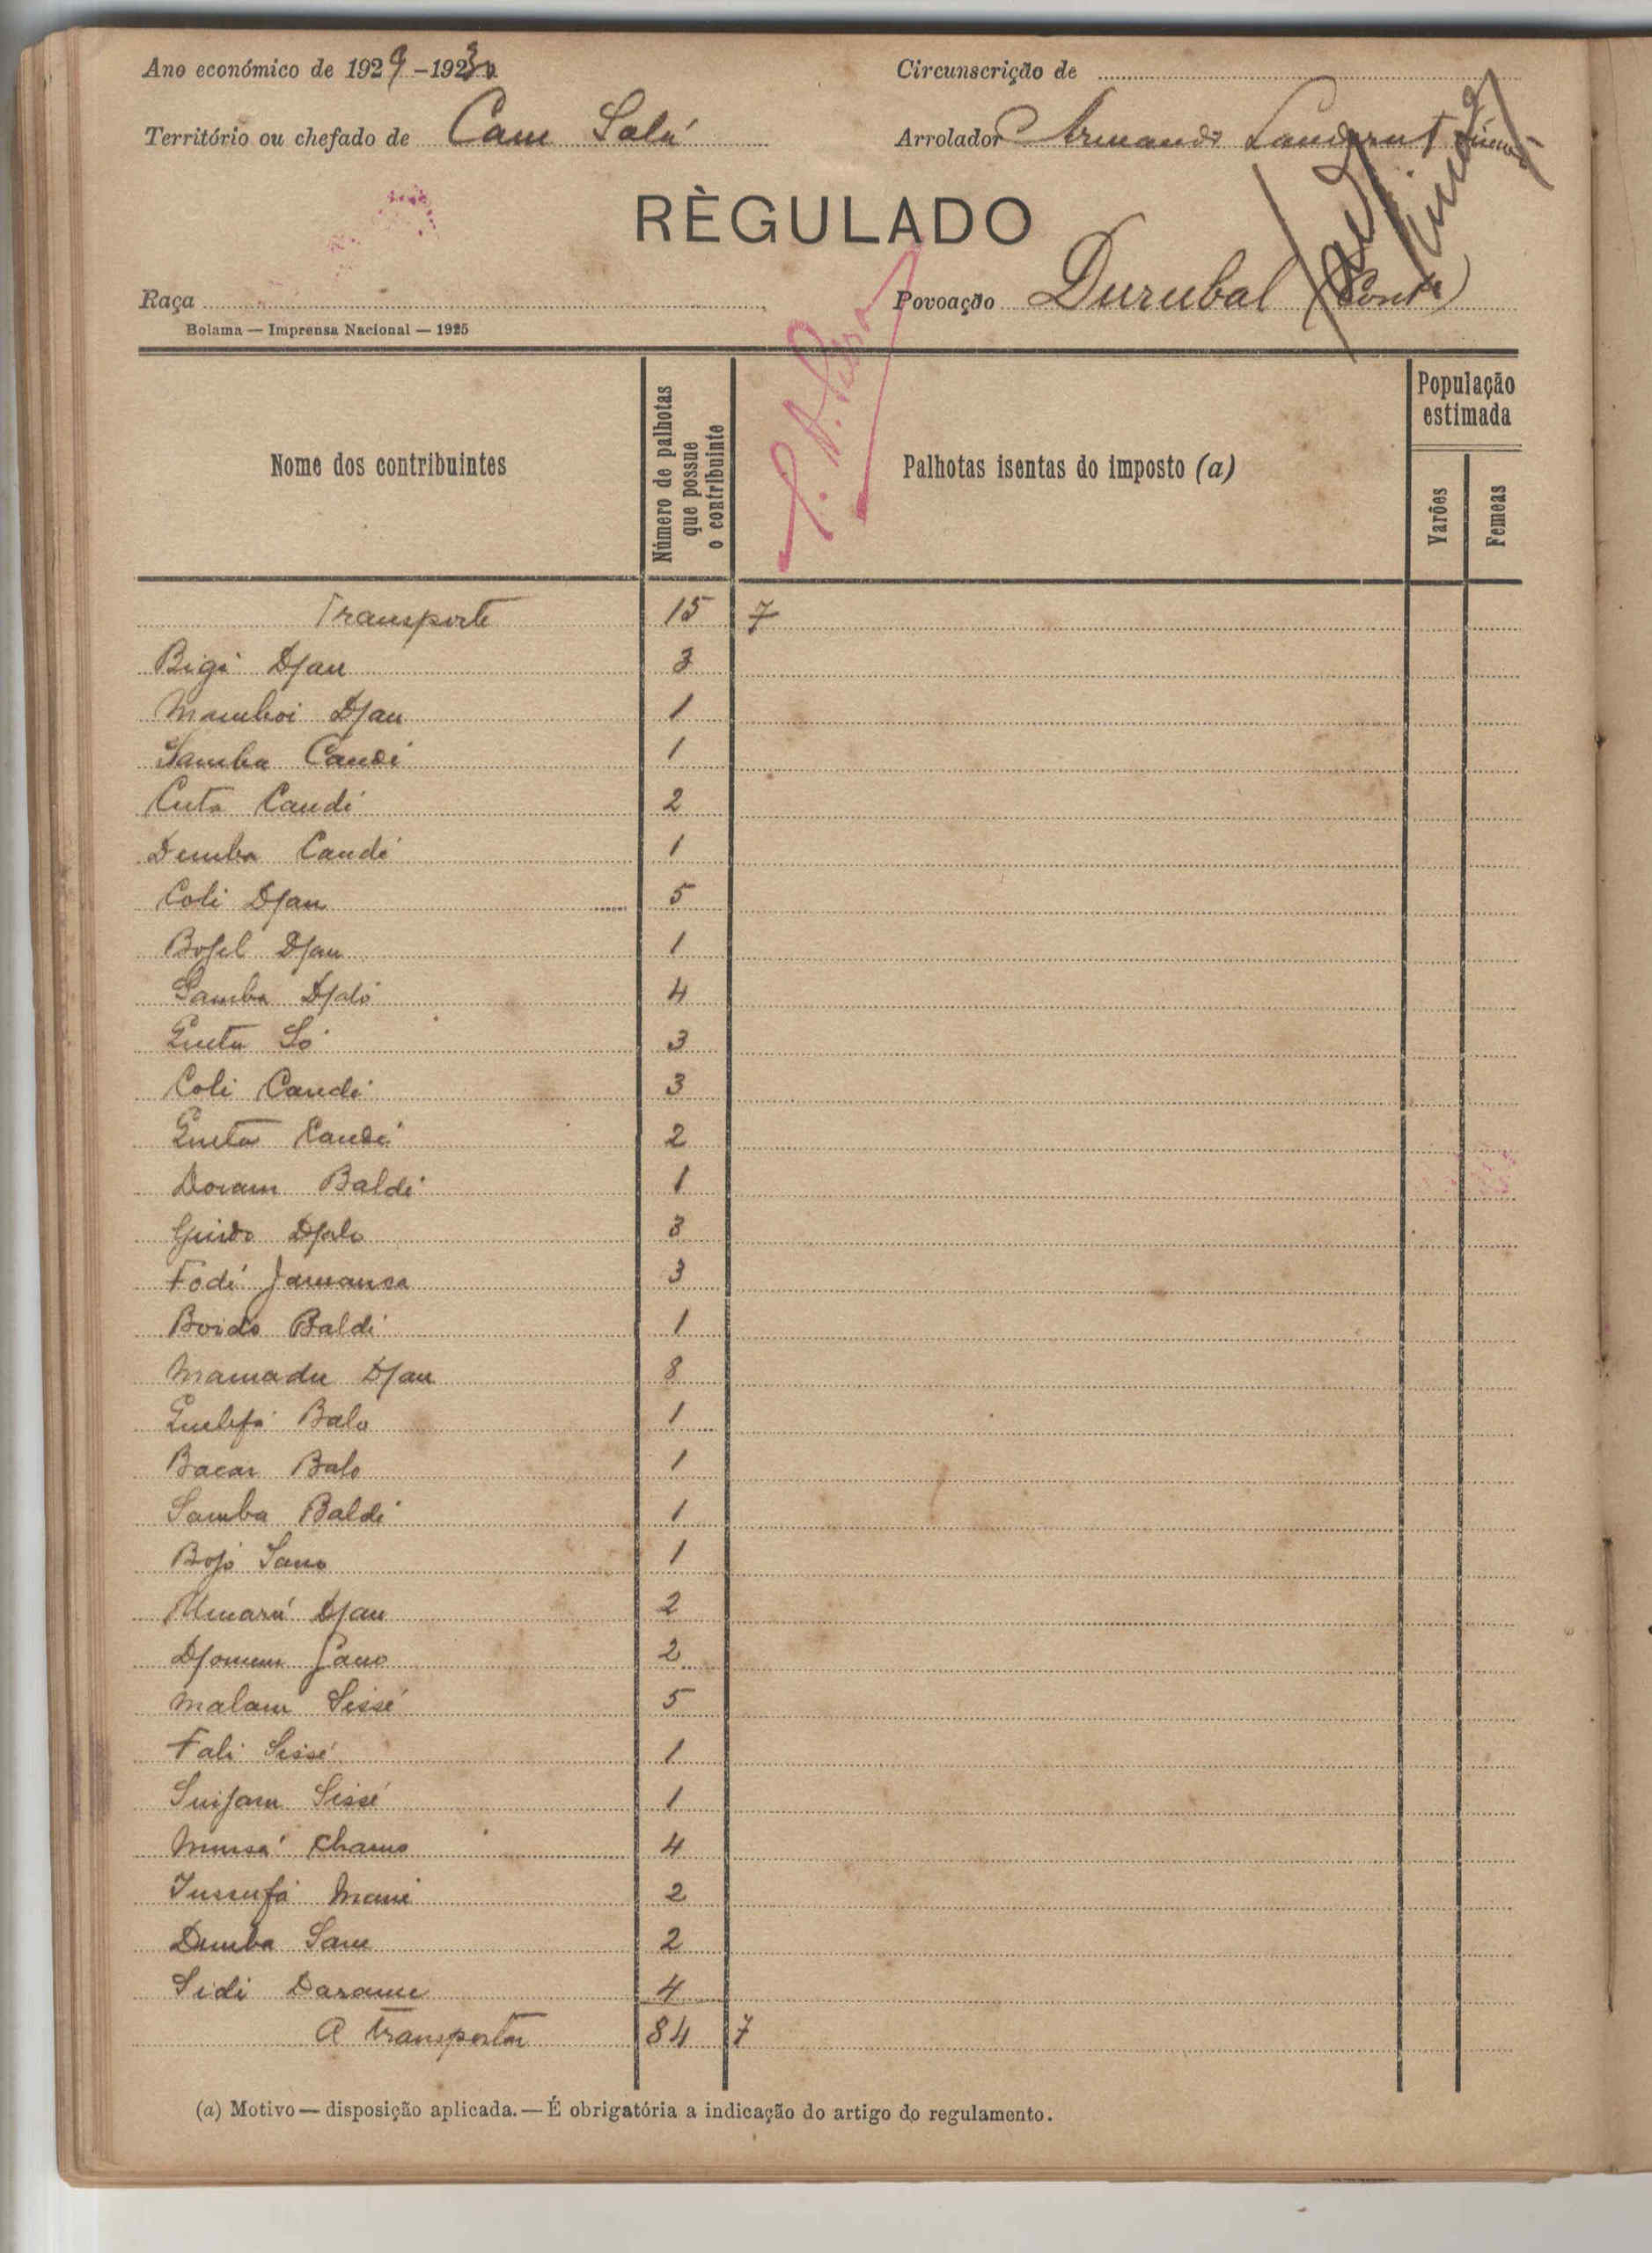 Ano económico de 1929-1930
Circunscrição de
Território ou chefado de Cam Salá
Arrolador Armando
RÈGULADO
Raça
Povoação Durubal (Cont.)
Bolama — Imprensa Nacional — 1925
Nome dos contribuintes
Número de palhotas que possue o contribuinte
Palhotas isentas do imposto (a)
População estimada
Varões
Femeas
Transporte 15 7
Bigi Djau 3
Mamboi Djau 1
Samba Candé 1
Cuta Candé 2
Demba Candé 1
Coli Djau 5
Bojel Djau 1
Samba Djaló 4
Queta Só 3
Coli Candé 3
Queta Candé 2
Doram Baldé 1
Guido Djalo 3
Fodé Jamansa 3
Boido Baldé 1
Mamadu Djau 8
Quebfá Balo 1
Bacar Balo 1
Samba Baldé 1
Bojó Sano 1
Umarú Djau 2
Djomem Sano 2
Malam Sissé 5
Fali Sissé 1
Suifam Sissé 1
Mussá Chamo 4
Jussufá Mané 2
Demba Same 2
Sidi Darame 4
A transportar 84 7
(a) Motivo — disposição aplicada. — É obrigatória a indicação do artigo do regulamento.